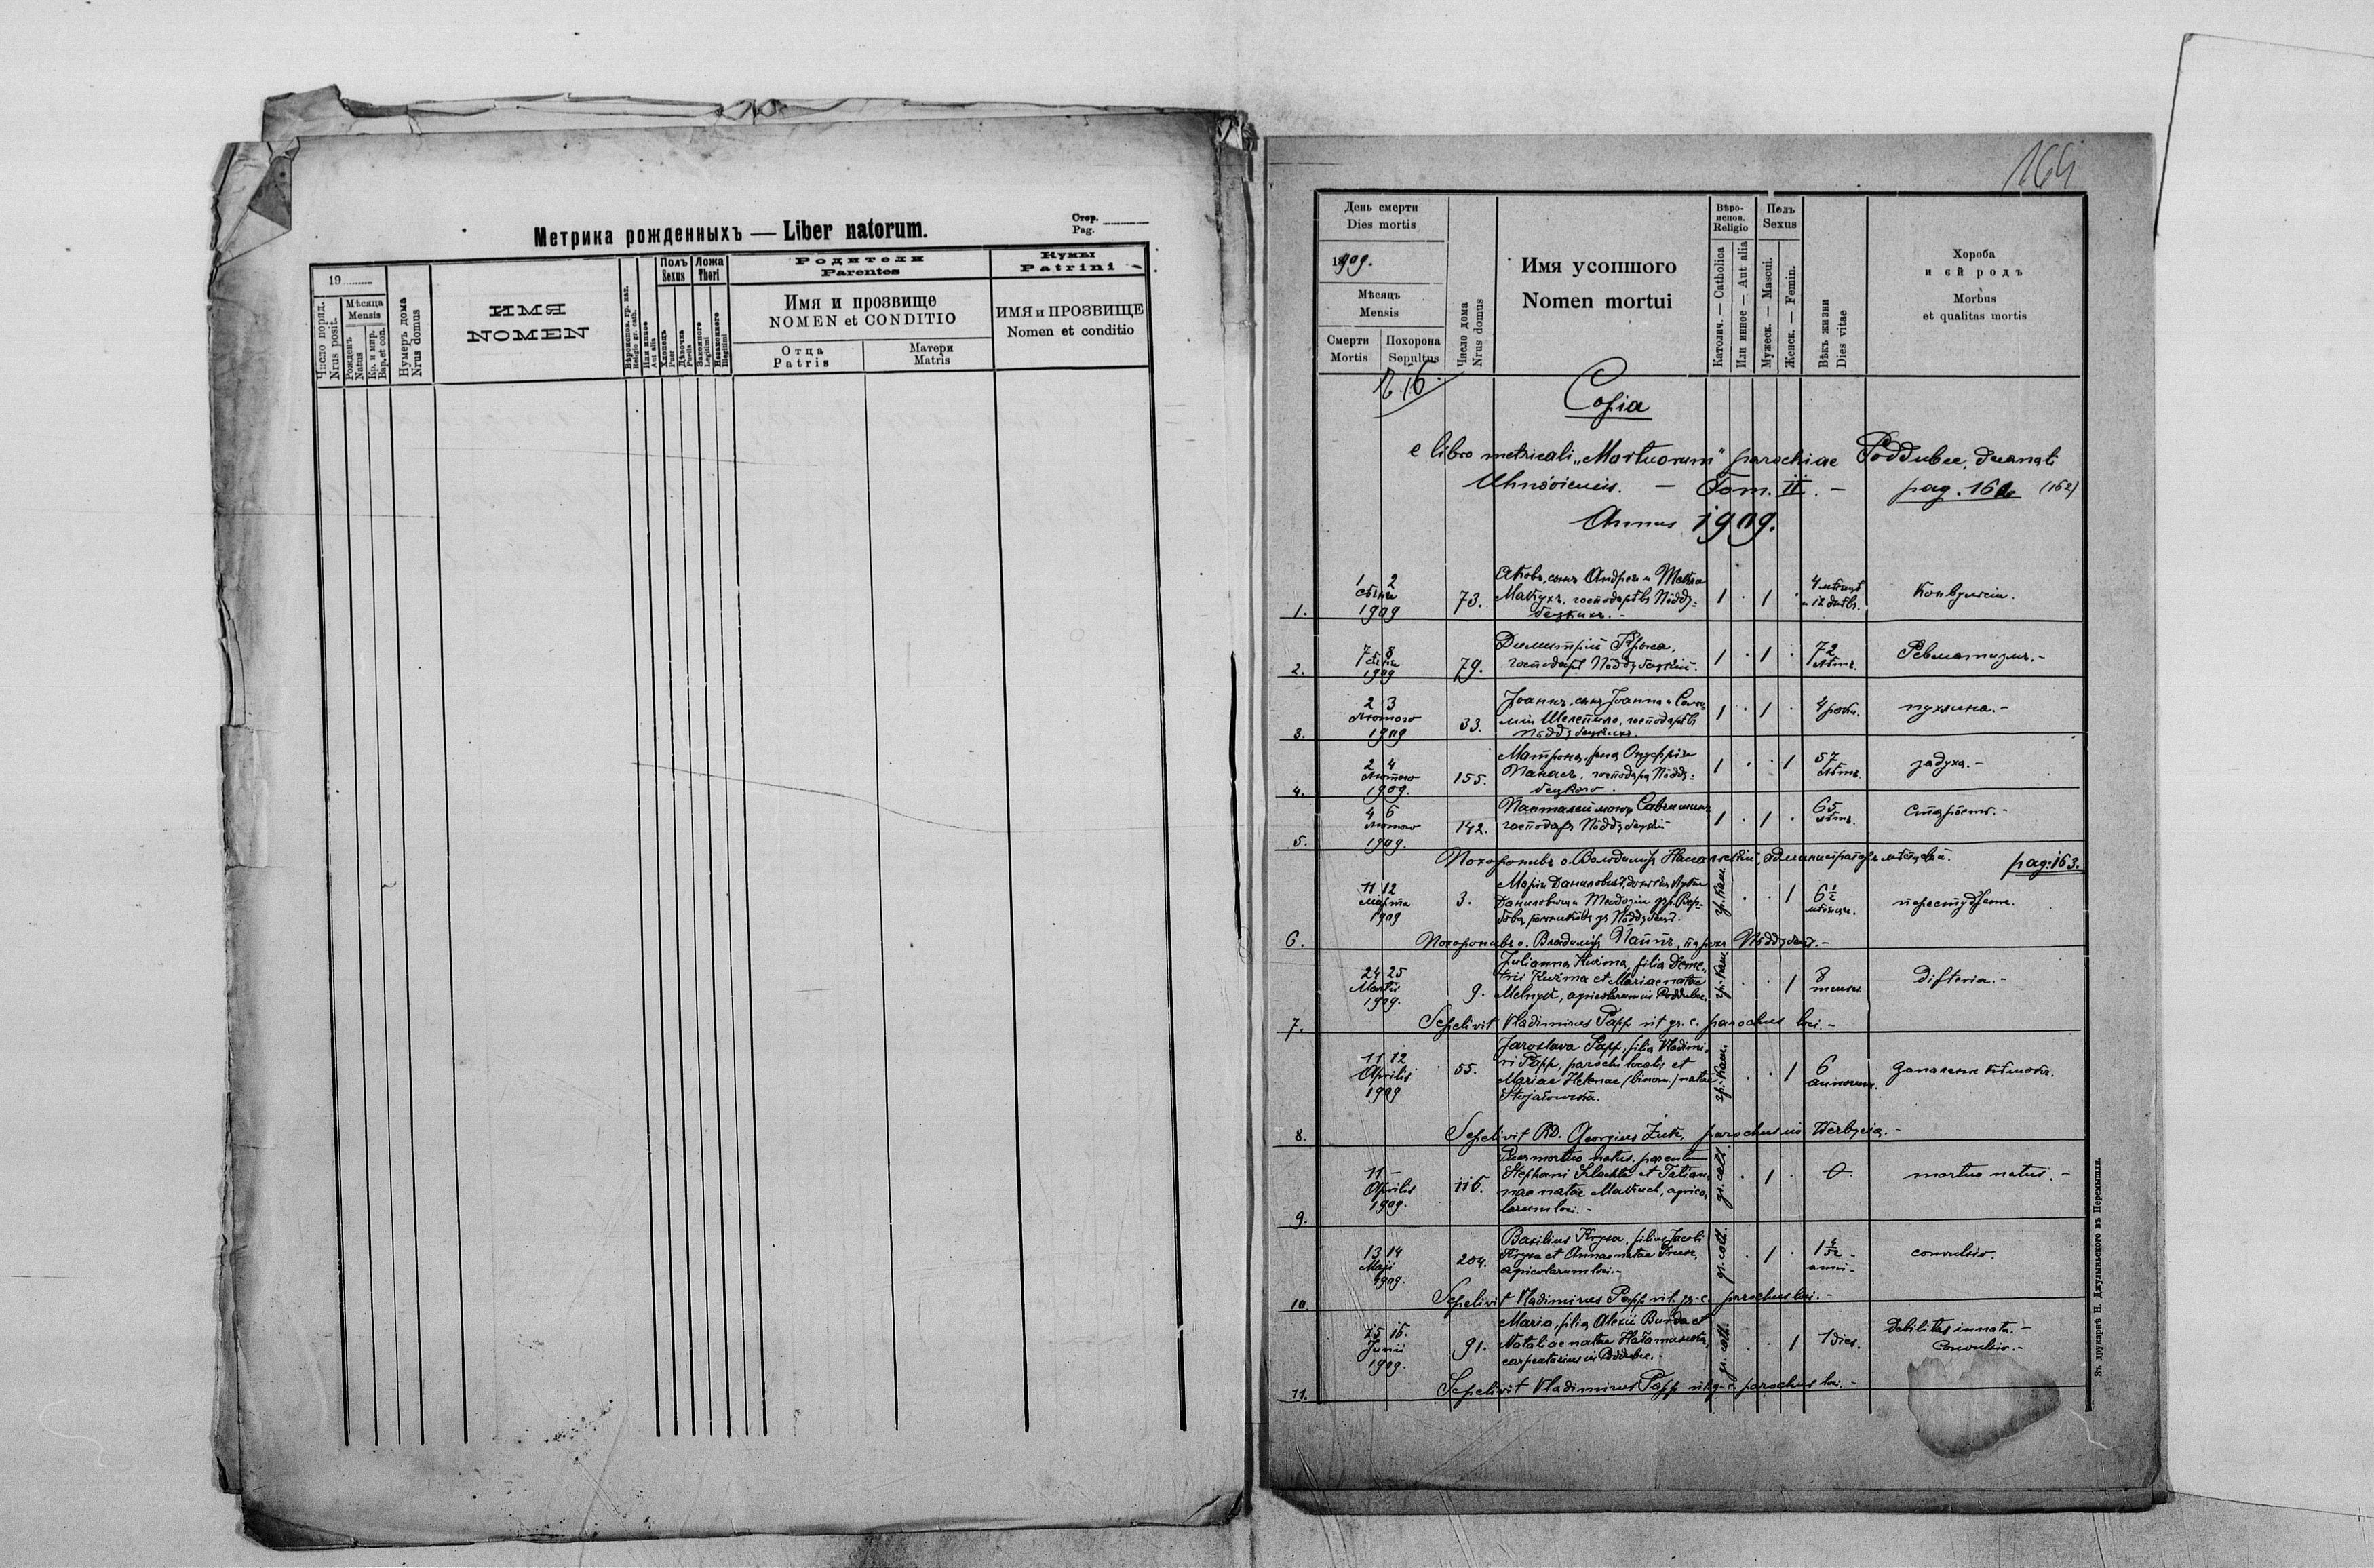 Метрика рожденныхъ — Liber natorum.
Стор.
Pag.
19
Число поряд.
Nrus posit.
Мѣсяца
Mensis
Рожденъ
Natus
Кр. и мир.
Bap. et conf.
Нумеръ дома
Nrus domus
ИМЯ
NOMEN
Вѣроиспов. гр. кат.
Religio gr. cath.
Или иное
Aut alia
Полъ
Sexus
Хлопець
Puer
Дѣвочка
Puella
Ложа
Thori
Законного
Legitimi
Незаконного
Illegitimi
Родители
Parentes
Имя и прозвище
NOMEN et CONDITIO
Отца
Patris
Матери
Matris
Кумы
Patrini
ИМЯ и ПРОЗВИЩЕ
Nomen et conditio
164
День смерти
Dies mortis
1909.
Мѣсяць
Mensis
Смерти
Mortis
Похорона
Sepultus
Число дома
Nrus domus
Имя усопшого
Nomen mortui
Вѣро-
испов.
Religio
Католич. — Catholica
Или инное — Aut alia
Полъ
Sexus
Мужеск. — Mascul.
Женск. — Femin.
Вѣкъ жизни
Dies vitae
Хороба
и єй родъ
Morbus
et qualitas mortis
Copia
e libro metricali „Mortuorum" parochiae Poddubce, decanati
Uhnoviensis. — Tom. II. — pag. 162 (162)
Annus 1909.
1. 1 2 1909 73. Яковъ, сынъ Андрея и
господарѣвъ Подду=
бецкихъ. 1 . 1 . 4
2. 7 8 1909 79. Димитрій Крыса,
господарь Поддубецкій. 1 . 1 . 72 лѣтъ. Ревматизмъ.
3. 2 3 Лютого 1909 33. Іоаннъ, сынъ Іоанна и
господарѣвъ
Поддубецкихъ. 1 . 1 . 4 роки. пухлина.
4. 2 4 Лютого 1909. 155. Матрона, жена Онуфрія
Панасъ, господаря Подду=
бецкого. 1 . . 1 57 лѣтъ. задуха.
5. 4 6 Лютого 1909. 142.
господарь Поддубецкій 1 . 1 . 65 лѣтъ. старость.
Похоронивъ о. Володимір
pag: 163.
6. 11 12 Марта 1909 3. Марія Даниловичъ,
Даниловича и
гр. кат. . . 1 6½ мѣсяця.
Похоронивъ о. Владимір Паппъ, парох
7. 24 25 Martii 1909. 9. Julianna Kuźma, filia Deme-
trii Kuźma et Mariae natae
Melnyk, agricolarum in Poddubce. гр. кат. . . 1 8 menses difteria.
Sepelivit Vladimirus Papp rit. gr. c. parochus loci.
8. 11 12 Aprilis 1909 55. Jaroslava Papp, filia Vladimi-
ri Papp, parochi localis et
Mariae Helenae (binom.) natae
Stojałowska. гр. кат. . . 1 6 annorum.
Sepelivit RD. Georgius Żuk, parochus in Werbycia.
9. 11 — Aprilis 1909. 116. Puer mortuo natus, parentum
Stephani et Tatian-
nae natae Matiuch, agrico-
larum loci. gr. cath. . 1 . 0 mortuo natus.
10. 13 14 Maji 1909. 204. Basilius Krysa, filius Jacobi
Krysa et Annae natae
agricolarum loci. gr. cath. . 1 . anni convulsio.
Sepelivit Vladimirus Papp rit. gr. c. parochus loci.
11. 15 16. Junii 1909. 91. Maria, filia Alexii Burda et
Nataliae natae
carpentarius in Poddubce. gr. cath. . . 1 1 dies. Debilitas innata.
Convulsio.
Sepelivit Vladimirus Papp rit. gr. c. parochus loci.
Въ друкарнѣ И. Джулыньского въ Перемышли.